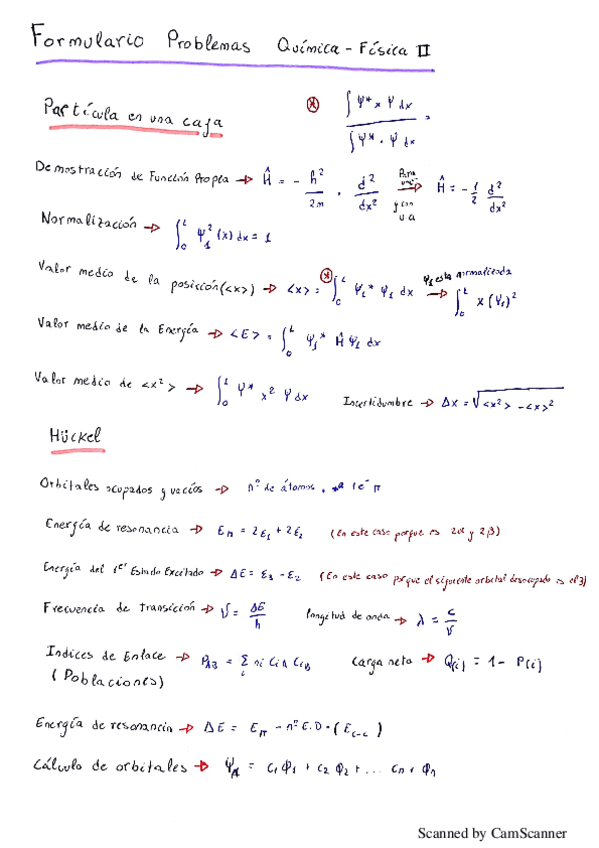 Formulario Problemas Química - Física II
Partícula en una caja
* ∫ψ* x ψ dx / ∫ψ* · ψ dx
Demostración de Función Propia → Ĥ = - ħ²/2m · d²/dx² → Ĥ = - 1/2 d²/dx²
Para
y con
u.a
Normalización → ∫₀ᴸ ψ₁² (x) dx = 1
Valor medio de la posición (<x>) → <x> = * ∫₀ᴸ ψ₁* ψ₁ dx → ∫₀ᴸ x (ψ₁)²
ψ₁ esta normalizada
Valor medio de la Energía → <E> = ∫₀ᴸ ψ₁* Ĥ ψ₁ dx
Valor medio de <x²> → ∫₀ᴸ ψ* x² ψ dx
Incertidumbre → Δx = √<x²> - <x>²
Hückel
Orbitales ocupados y vacíos → nº de átomos, 1e⁻ π
Energía de resonancia → Eπ = 2ε₁ + 2ε₂ (En este caso porque es 2α y 2β)
Energía del 1er Estado Excitado → ΔE = ε₃ - ε₂ (En este caso porque el siguiente orbital desocupado es el 3)
Frecuencia de transición → ν = ΔE/h longitud de onda → λ = c/ν
Indices de Enlace → P_AB = Σᵢ ni CiA CiB Carga neta → Q(i) = 1 - P(i)
(Poblaciones)
Energía de resonancia → ΔE = Eπ - nº E.D · (E_c-c)
Cálculo de orbitales → ψ_A = c₁ϕ₁ + c₂ϕ₂ + ... cₙ, ϕₙ
Scanned by CamScanner